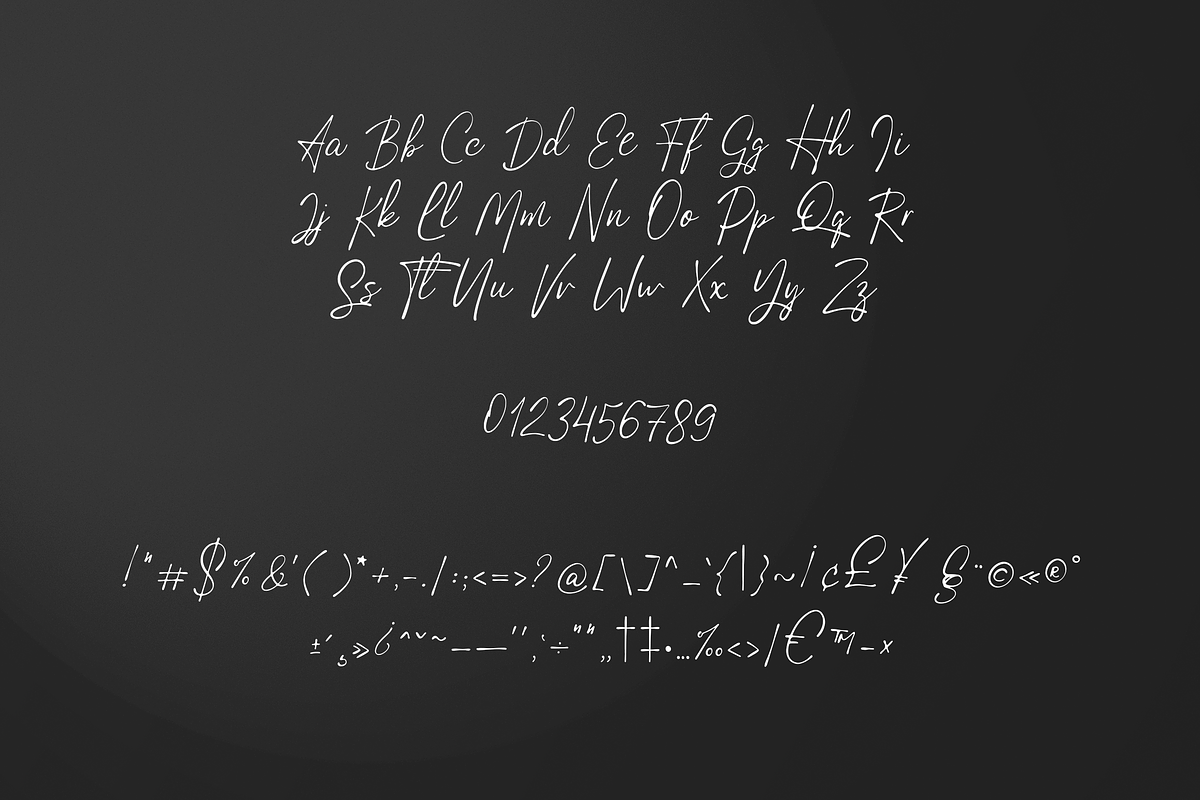 Aa Bb Cc Dd Ee Ff Gg Hh Ii
Jj Kk Ll Mm Nn Oo Pp Qq Rr
Ss Tt Uu Vv Ww Xx Yy Zz
0123456789
!"#$%&'()*+,-./:;<=>?@[\]^_`{|}~¡¢£¥§¨©«®°
±´¸»¿ˆˇ˜–—‘’‚‛÷“”„†‡•…‰‹›⁄€™−×